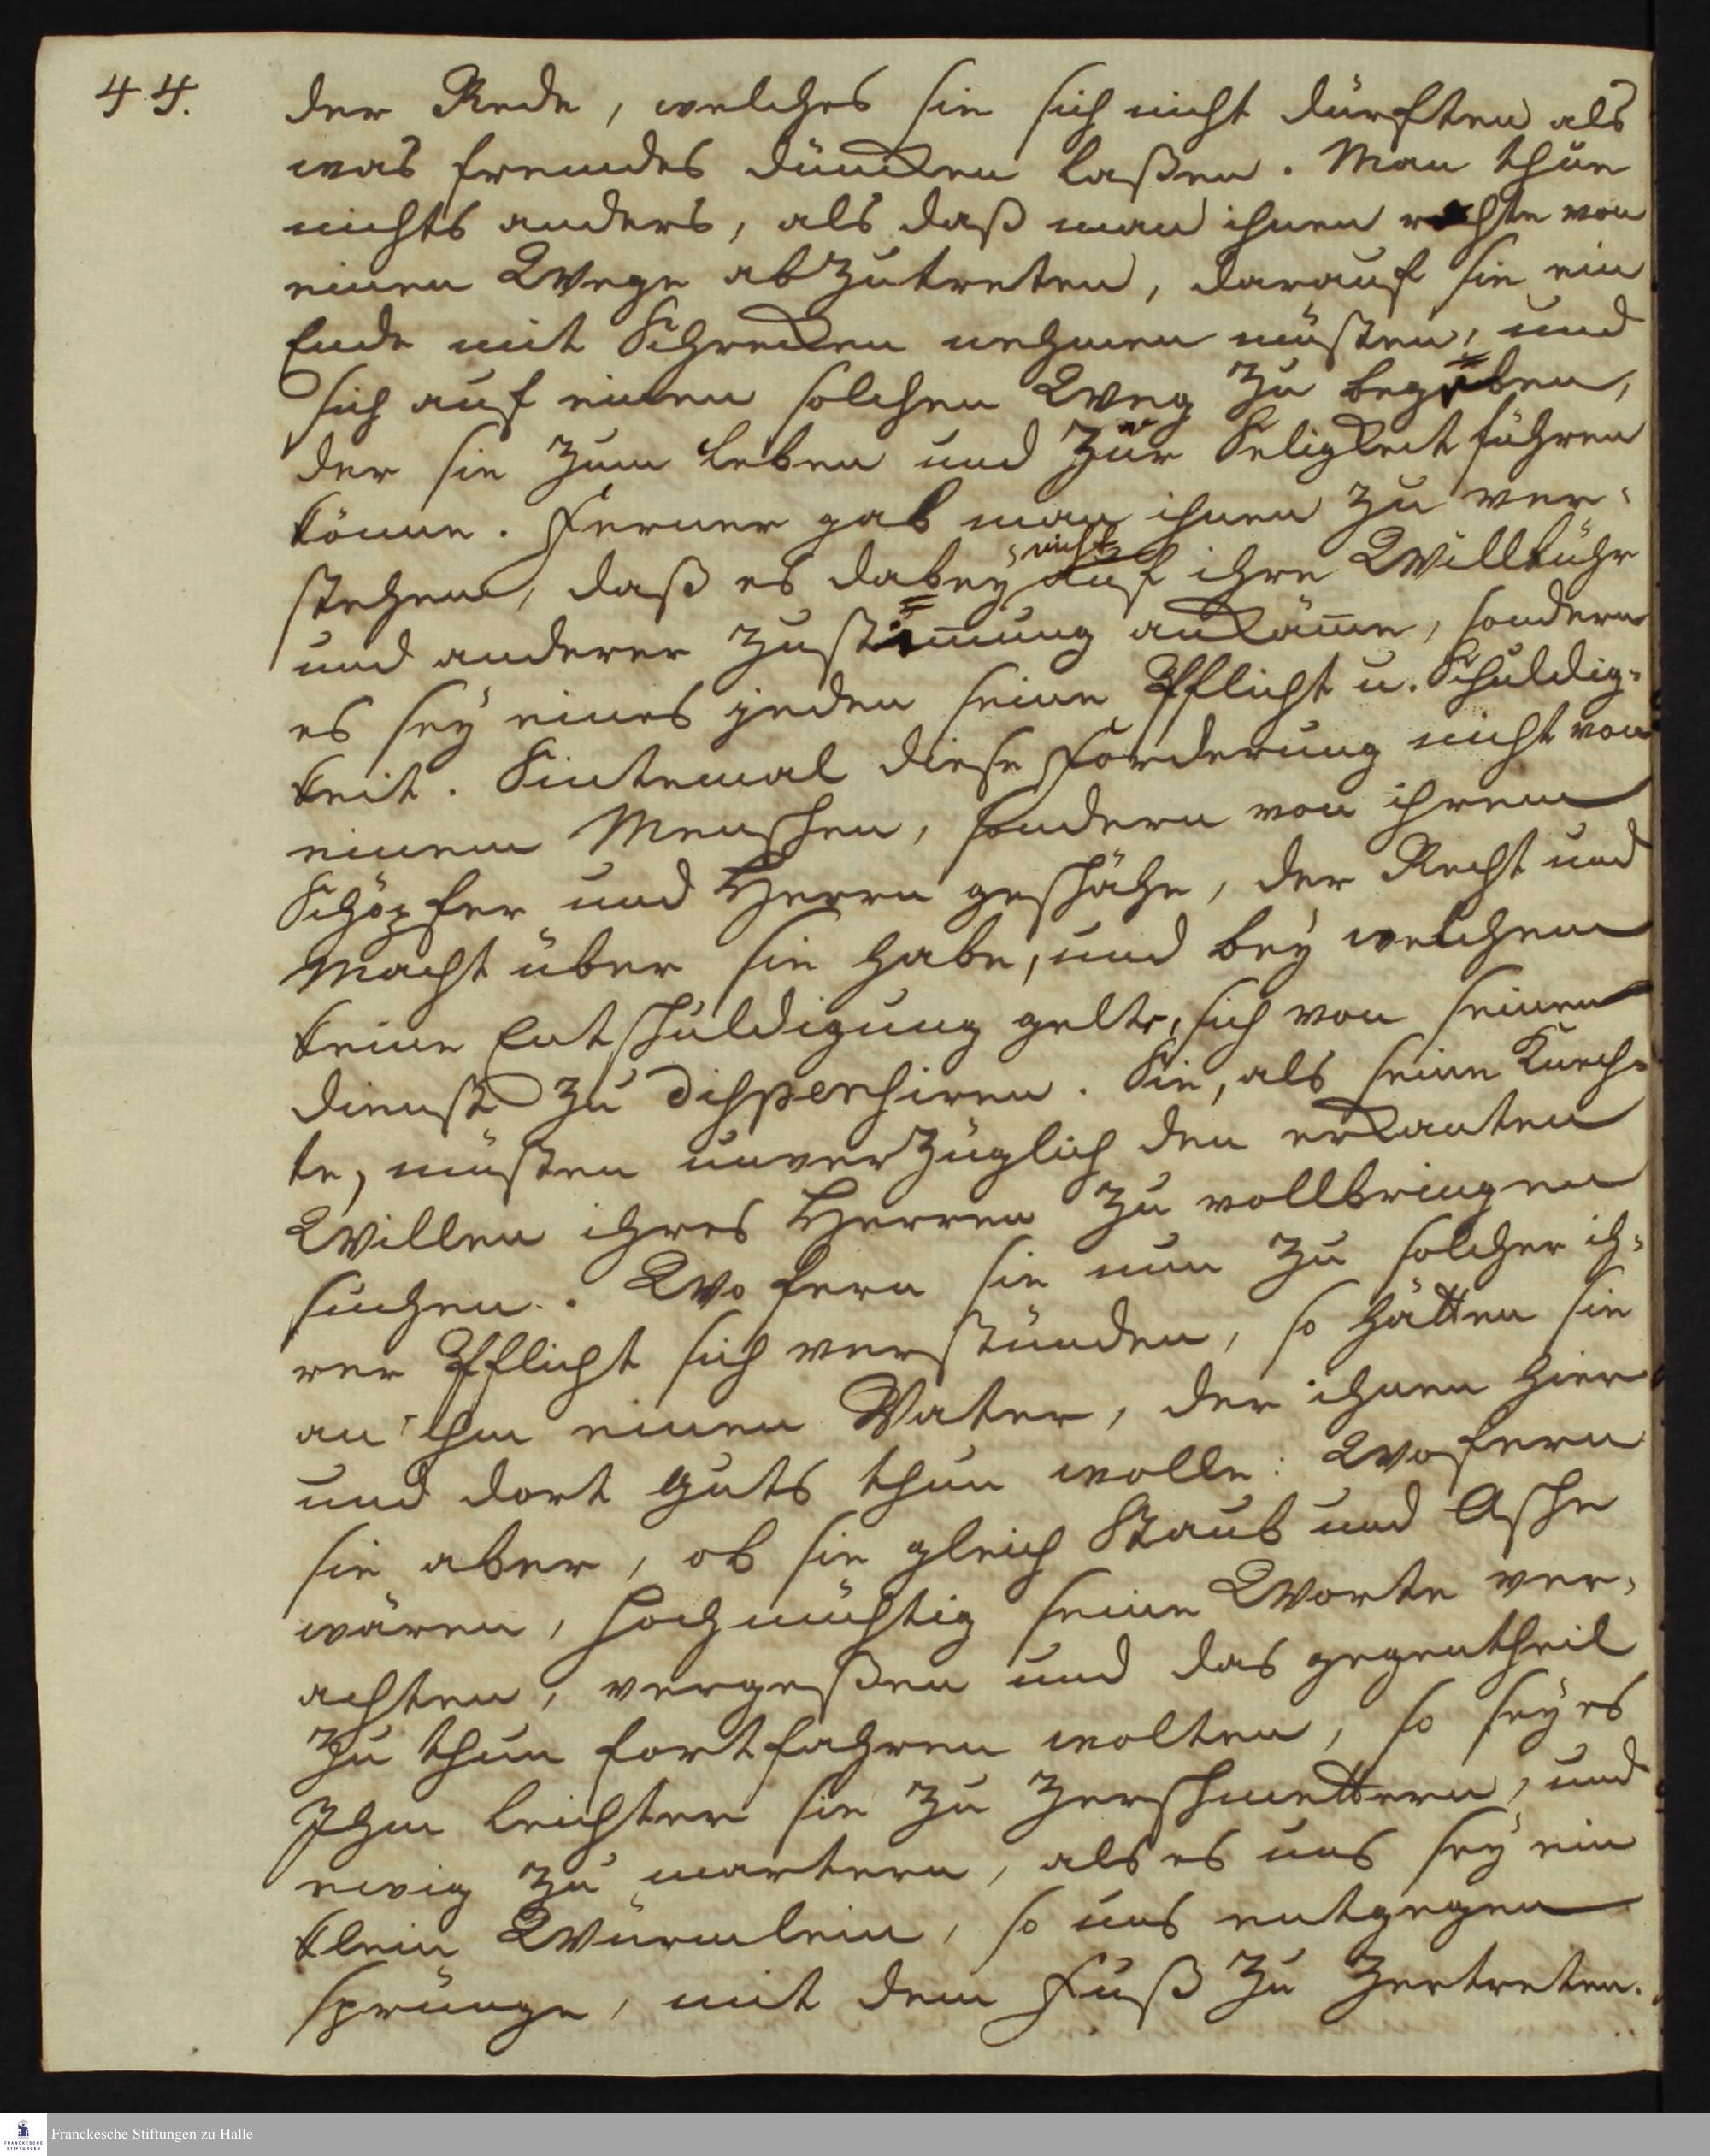 44.
der Rede, welches sie sich nicht dürfften als
was fremdes düncken laßen. Man thue
nichts anders, als daß man ihnen rathe von
einen Wege abzutreten, darauf sie ein
Ende mit Schrecken nehmen müsten, und
sich auf einen solchen Weg zu begeben,
der sie zum Leben und zur Seligkeit führen
könne. Ferner gab man ihnen zu ver-
stehen, daß es dabey nicht auf ihre Willkühr
und anderer Zustimmung ankäme, sondern
es sey eines jeden seine Pflicht u. Schuldig-
keit. Sintemal diese Forderung nicht von
einem Menschen, sondern von ihrem
Schöpfer und Herrn geschähe, der Recht und
Macht über sie habe, und bey welchem
keine Entschuldigung gelte, sich von seinem
Dienst zu dispensiren. Sie, als seine Knech-
te, müsten unverzüglich den erkanten
Willen ihres Herren zu vollbringen
suchen. Wo fern sie nun zu solcher ih-
rer Pflicht sich verstünden, so hätten sie
an Ihm einen Vater, der ihnen hier
und dort guts thun wolle: Wofern
sie aber, ob sie gleich Staub und Asche
wären, hochmüthig seine Worte ver-
achten, vergeßen und das gegentheil
zu thun fortfahren wolten, so sey es
Ihm leichter sie zu zerschmettern, und
ewig zu martern, als es uns sey ein
klein Würmlein, so uns entgegen
sprünge, mit dem Fuß zu zertreten.
Franckesche Stiftungen zu Halle